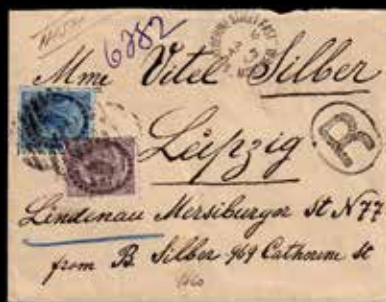 6282
Mme Vitel Silber
Leipzig
R
Lindenau Mersiburger St N 77
from B. Silber 969 Cathorine St